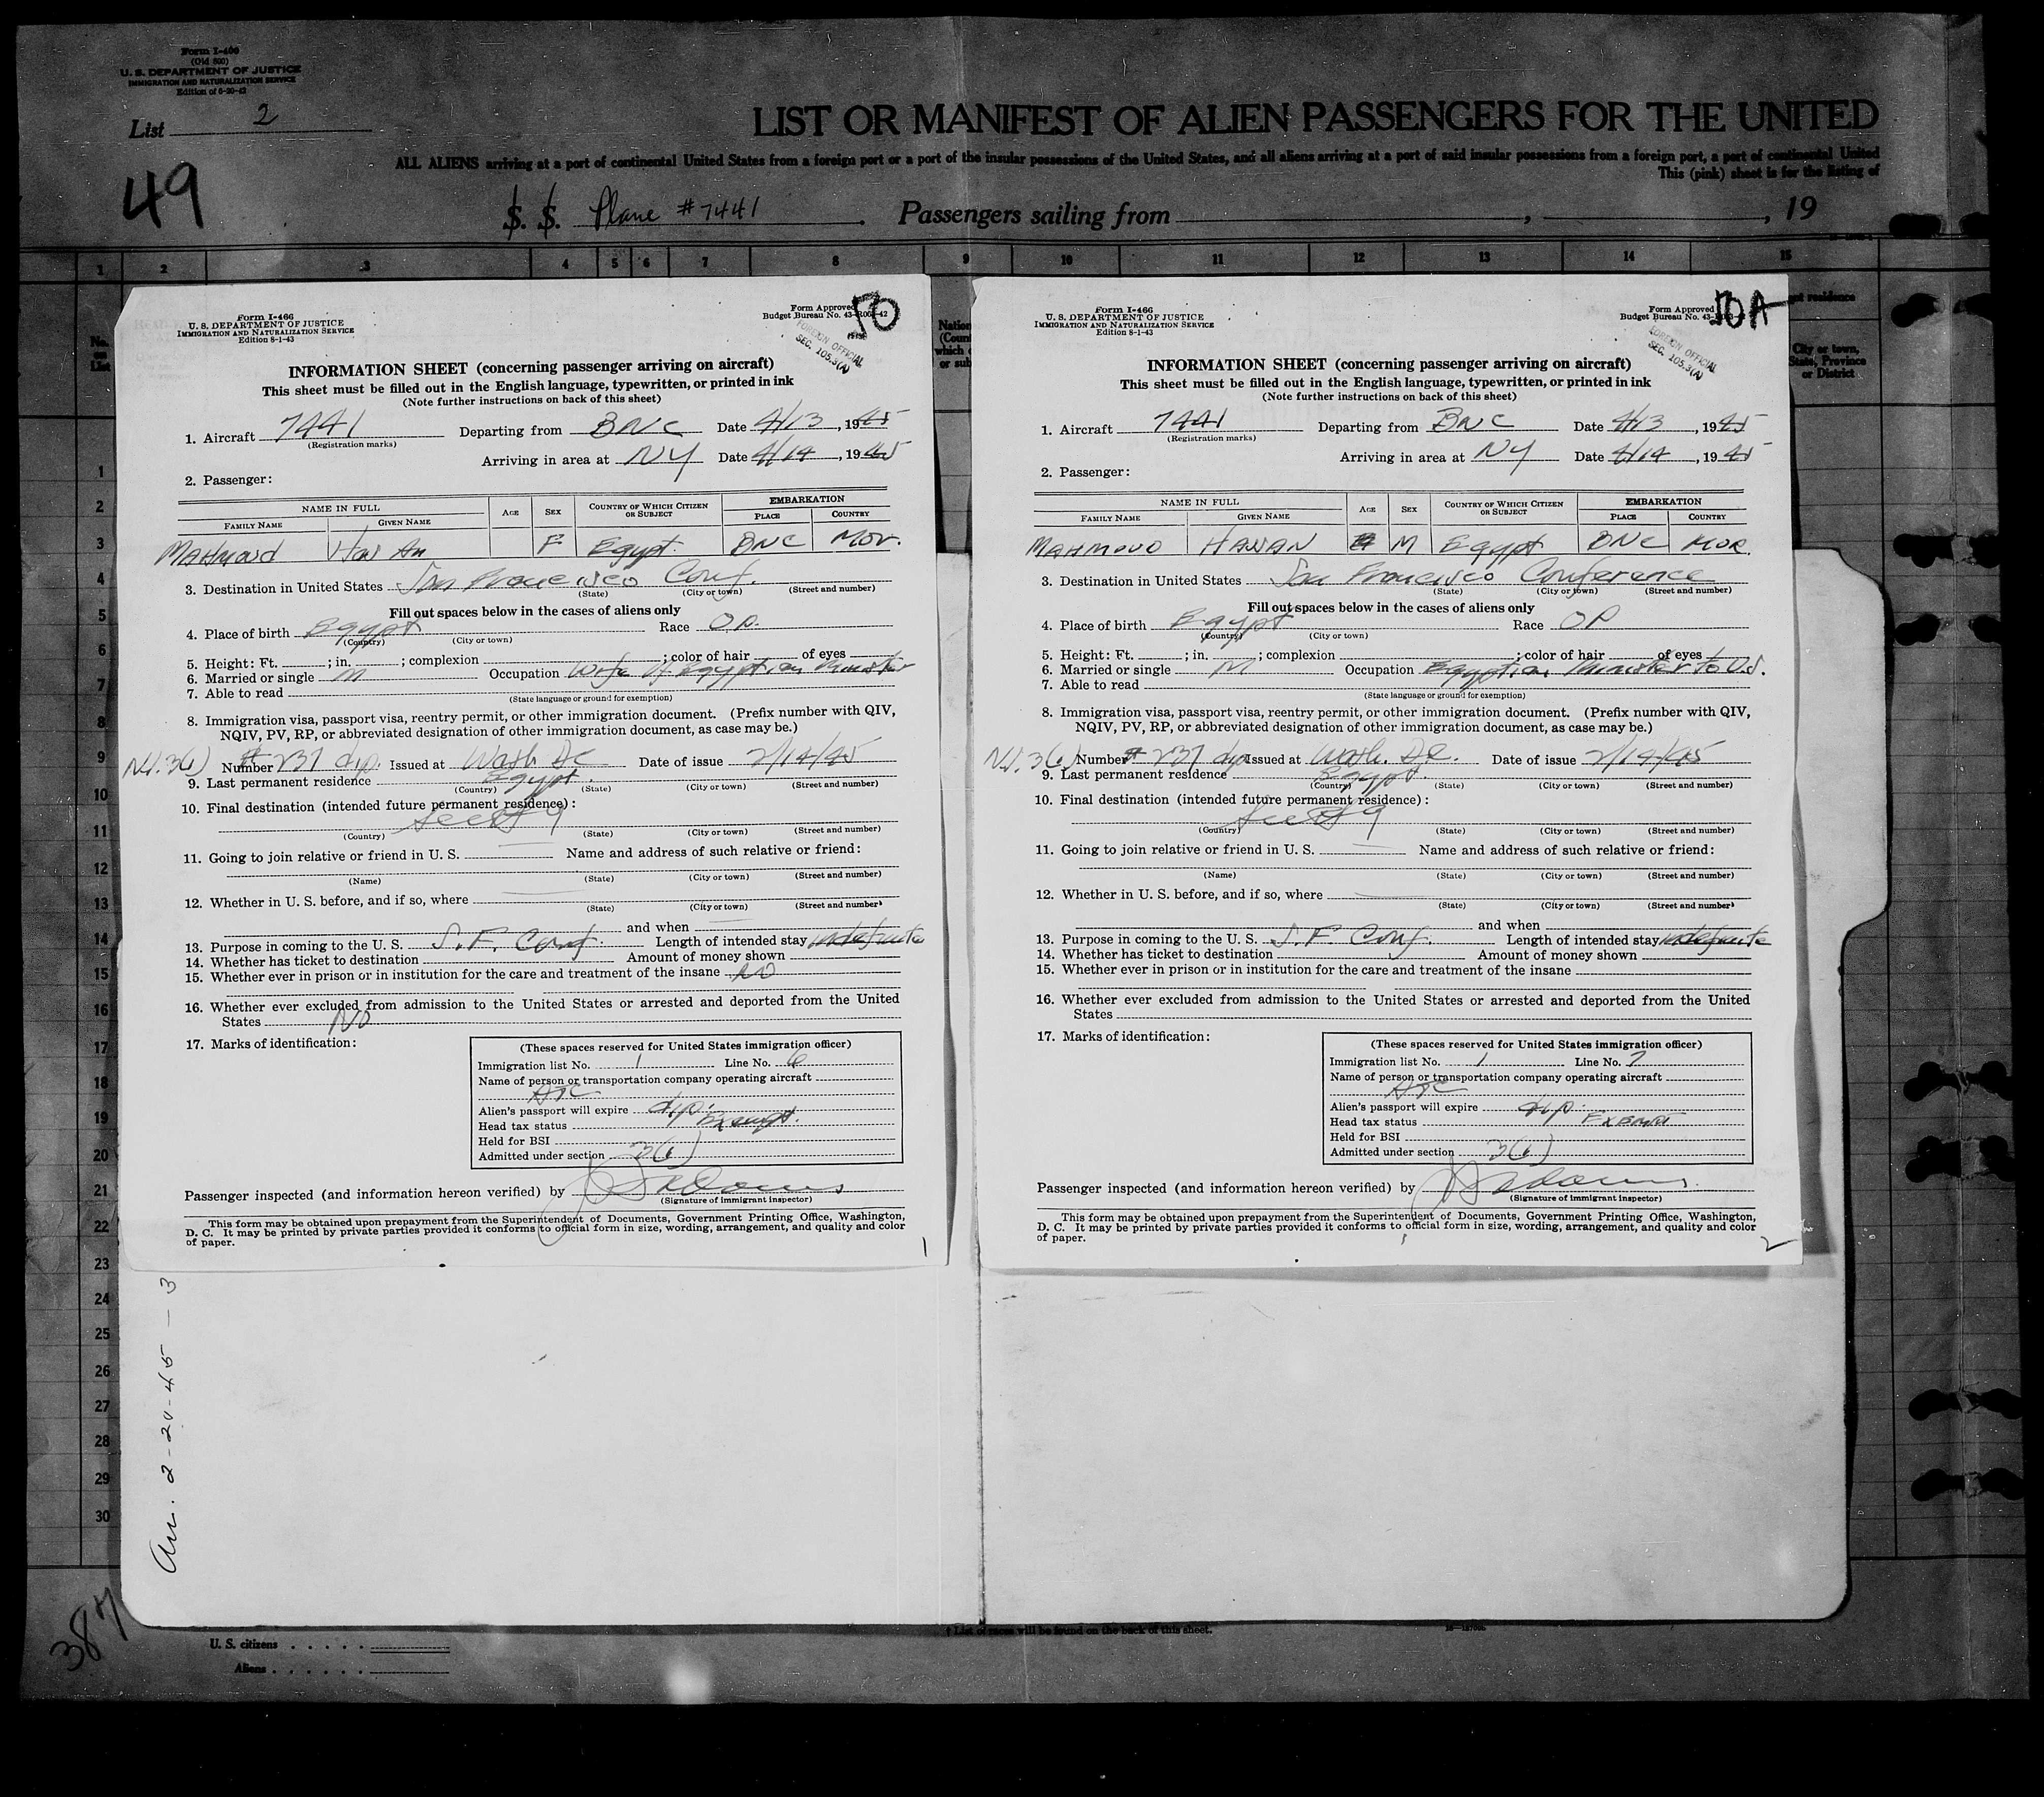 Form I-466
(Old 500)
U. S. DEPARTMENT OF JUSTICE
IMMIGRATION AND NATURALIZATION SERVICE
Edition of 6-20-42
List 2
49
LIST OR MANIFEST OF ALIEN PASSENGERS FOR THE UNITED
ALL ALIENS arriving at a port of continental United States from a foreign port or a port of the insular possessions of the United States, and all aliens arriving at a port of said insular possessions from a foreign port, a port of continental United
This (pink) sheet is for the listing of
S. S. Plane # 7441 Passengers sailing from , , 19
1 2 3 4 5 6 7 8 9 10 11 12 13 14 15
No. on List
City or town, State, Province or District
Form I-466
U. S. DEPARTMENT OF JUSTICE
IMMIGRATION AND NATURALIZATION SERVICE
Edition 8-1-43
Form Approved
Budget Bureau No. 43-R005-42
50
FOREIGN OFFICIAL
SEC. 105.3(A)
INFORMATION SHEET (concerning passenger arriving on aircraft)
This sheet must be filled out in the English language, typewritten, or printed in ink
(Note further instructions on back of this sheet)
1. Aircraft 7441 Departing from BNC Date 4/13, 1945
(Registration marks)
Arriving in area at NY Date 4/14, 1945
2. Passenger:
NAME IN FULL AGE SEX COUNTRY OF WHICH CITIZEN OR SUBJECT EMBARKATION
FAMILY NAME GIVEN NAME PLACE COUNTRY
Mahmoud F Egypt. BNC Mor.
3. Destination in United States San Francisco Conf.
(State) (City or town) (Street and number)
Fill out spaces below in the cases of aliens only
4. Place of birth Egypt Race
(Country) (City or town)
5. Height: Ft. ; in. ; complexion ; color of hair of eyes
6. Married or single M Occupation Wife of Egyptian Minister
7. Able to read
(State language or ground for exemption)
8. Immigration visa, passport visa, reentry permit, or other immigration document. (Prefix number with QIV,
NQIV, PV, RP, or abbreviated designation of other immigration document, as case may be.)
Number # 237 dip. Issued at Wash DC Date of issue 2/14/45
9. Last permanent residence Egypt.
(Country) (State) (City or town) (Street and number)
10. Final destination (intended future permanent residence):
see # 9
(Country) (State) (City or town) (Street and number)
11. Going to join relative or friend in U. S. Name and address of such relative or friend:
(Name) (State) (City or town) (Street and number)
12. Whether in U. S. before, and if so, where
(State) (City or town) (Street and number)
and when
13. Purpose in coming to the U. S. S.F. Conf. Length of intended stay indefinite
14. Whether has ticket to destination Amount of money shown
15. Whether ever in prison or in institution for the care and treatment of the insane NO
16. Whether ever excluded from admission to the United States or arrested and deported from the United
States NO
17. Marks of identification:
(These spaces reserved for United States immigration officer)
Immigration list No. 1 Line No. 6
Name of person or transportation company operating aircraft
ATC
Alien's passport will expire dip.
Head tax status Exempt.
Held for BSI
Admitted under section 3(1)
Passenger inspected (and information hereon verified) by
(Signature of immigrant inspector)
This form may be obtained upon prepayment from the Superintendent of Documents, Government Printing Office, Washington,
D. C. It may be printed by private parties provided it conforms to official form in size, wording, arrangement, and quality and color
of paper.
1
Form I-466
U. S. DEPARTMENT OF JUSTICE
IMMIGRATION AND NATURALIZATION SERVICE
Edition 8-1-43
Form Approved
Budget Bureau No. 43-
50A
FOREIGN OFFICIAL
SEC. 105.3(A)
INFORMATION SHEET (concerning passenger arriving on aircraft)
This sheet must be filled out in the English language, typewritten, or printed in ink
(Note further instructions on back of this sheet)
1. Aircraft 7441 Departing from BNC Date 4/13, 1945
(Registration marks)
Arriving in area at NY Date 4/14, 1945
2. Passenger:
NAME IN FULL AGE SEX COUNTRY OF WHICH CITIZEN OR SUBJECT EMBARKATION
FAMILY NAME GIVEN NAME PLACE COUNTRY
MAHMOUD HASSAN M Egypt BNC MOR.
3. Destination in United States San Francisco Conference
(State) (City or town) (Street and number)
Fill out spaces below in the cases of aliens only
4. Place of birth Egypt Race
(Country) (City or town)
5. Height: Ft. ; in. ; complexion ; color of hair of eyes
6. Married or single M Occupation Egyptian Minister to U.S.
7. Able to read
(State language or ground for exemption)
8. Immigration visa, passport visa, reentry permit, or other immigration document. (Prefix number with QIV,
NQIV, PV, RP, or abbreviated designation of other immigration document, as case may be.)
Number # 237 dip Issued at Wash. DC. Date of issue 2/14/45
9. Last permanent residence Egypt.
(Country) (State) (City or town) (Street and number)
10. Final destination (intended future permanent residence):
see # 9
(Country) (State) (City or town) (Street and number)
11. Going to join relative or friend in U. S. Name and address of such relative or friend:
(Name) (State) (City or town) (Street and number)
12. Whether in U. S. before, and if so, where
(State) (City or town) (Street and number)
and when
13. Purpose in coming to the U. S. S.F. Conf. Length of intended stay indefinite
14. Whether has ticket to destination Amount of money shown
15. Whether ever in prison or in institution for the care and treatment of the insane
16. Whether ever excluded from admission to the United States or arrested and deported from the United
States
17. Marks of identification:
(These spaces reserved for United States immigration officer)
Immigration list No. 1 Line No. 7
Name of person or transportation company operating aircraft
ATC
Alien's passport will expire dip.
Head tax status EXEMPT
Held for BSI
Admitted under section 3(1)
Passenger inspected (and information hereon verified) by
(Signature of immigrant inspector)
This form may be obtained upon prepayment from the Superintendent of Documents, Government Printing Office, Washington,
D. C. It may be printed by private parties provided it conforms to official form in size, wording, arrangement, and quality and color
of paper.
2
1
2
3
4
5
6
7
8
9
10
11
12
13
14
15
16
17
18
19
20
21
22
23
24
25
26
27
28
29
30
2-20-45 — 3
387
U. S. citizens
Aliens
† List of races will be found on the back of this sheet.